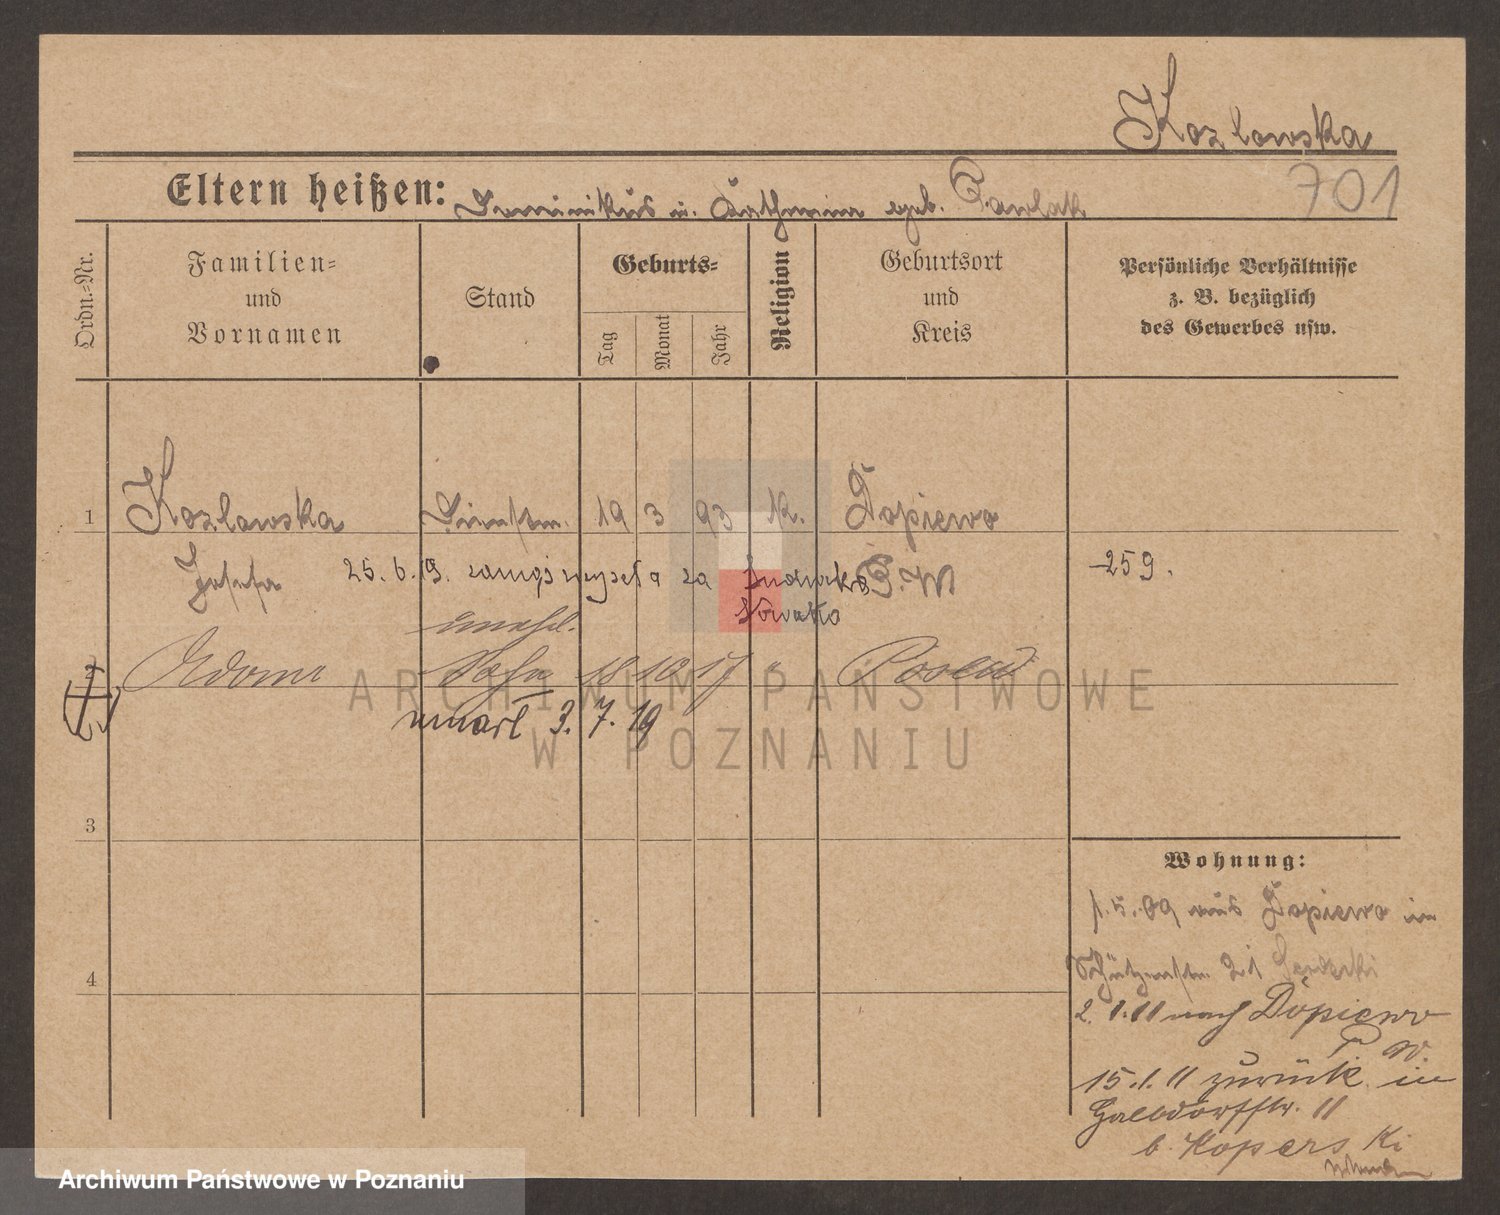 Kozlowska
Eltern heißen: Dominikus u. Katharina geb. Pawlak
701
Ordn.-Nr.
Familien-
und
Vornamen
Stand
Geburts-
Tag
Monat
Jahr
Religion
Geburtsort
und
Kreis
Persönliche Verhältnisse
z. B. bezüglich
des Gewerbes usw.
1 Kozlowska Dienstm. 19 3 93 K. Dopiewo
Josefa 25. 6. 19. zamąż wyszła za Ludwika P. W 259.
Nowaka
unehel.
2 Adam Sohn 18 10 17 " Posen
umarł 3. 7. 19
3
4
Wohnung:
1. 5. 09 aus Dopiewo in
Schützenstr. 21
2. 1. 11 nach Dopiewo
P. W.
15. 1. 11 zurück in
Halbdorfstr. 11
b. Koperski
ARCHIWUM PAŃSTWOWE
W POZNANIU
Archiwum Państwowe w Poznaniu